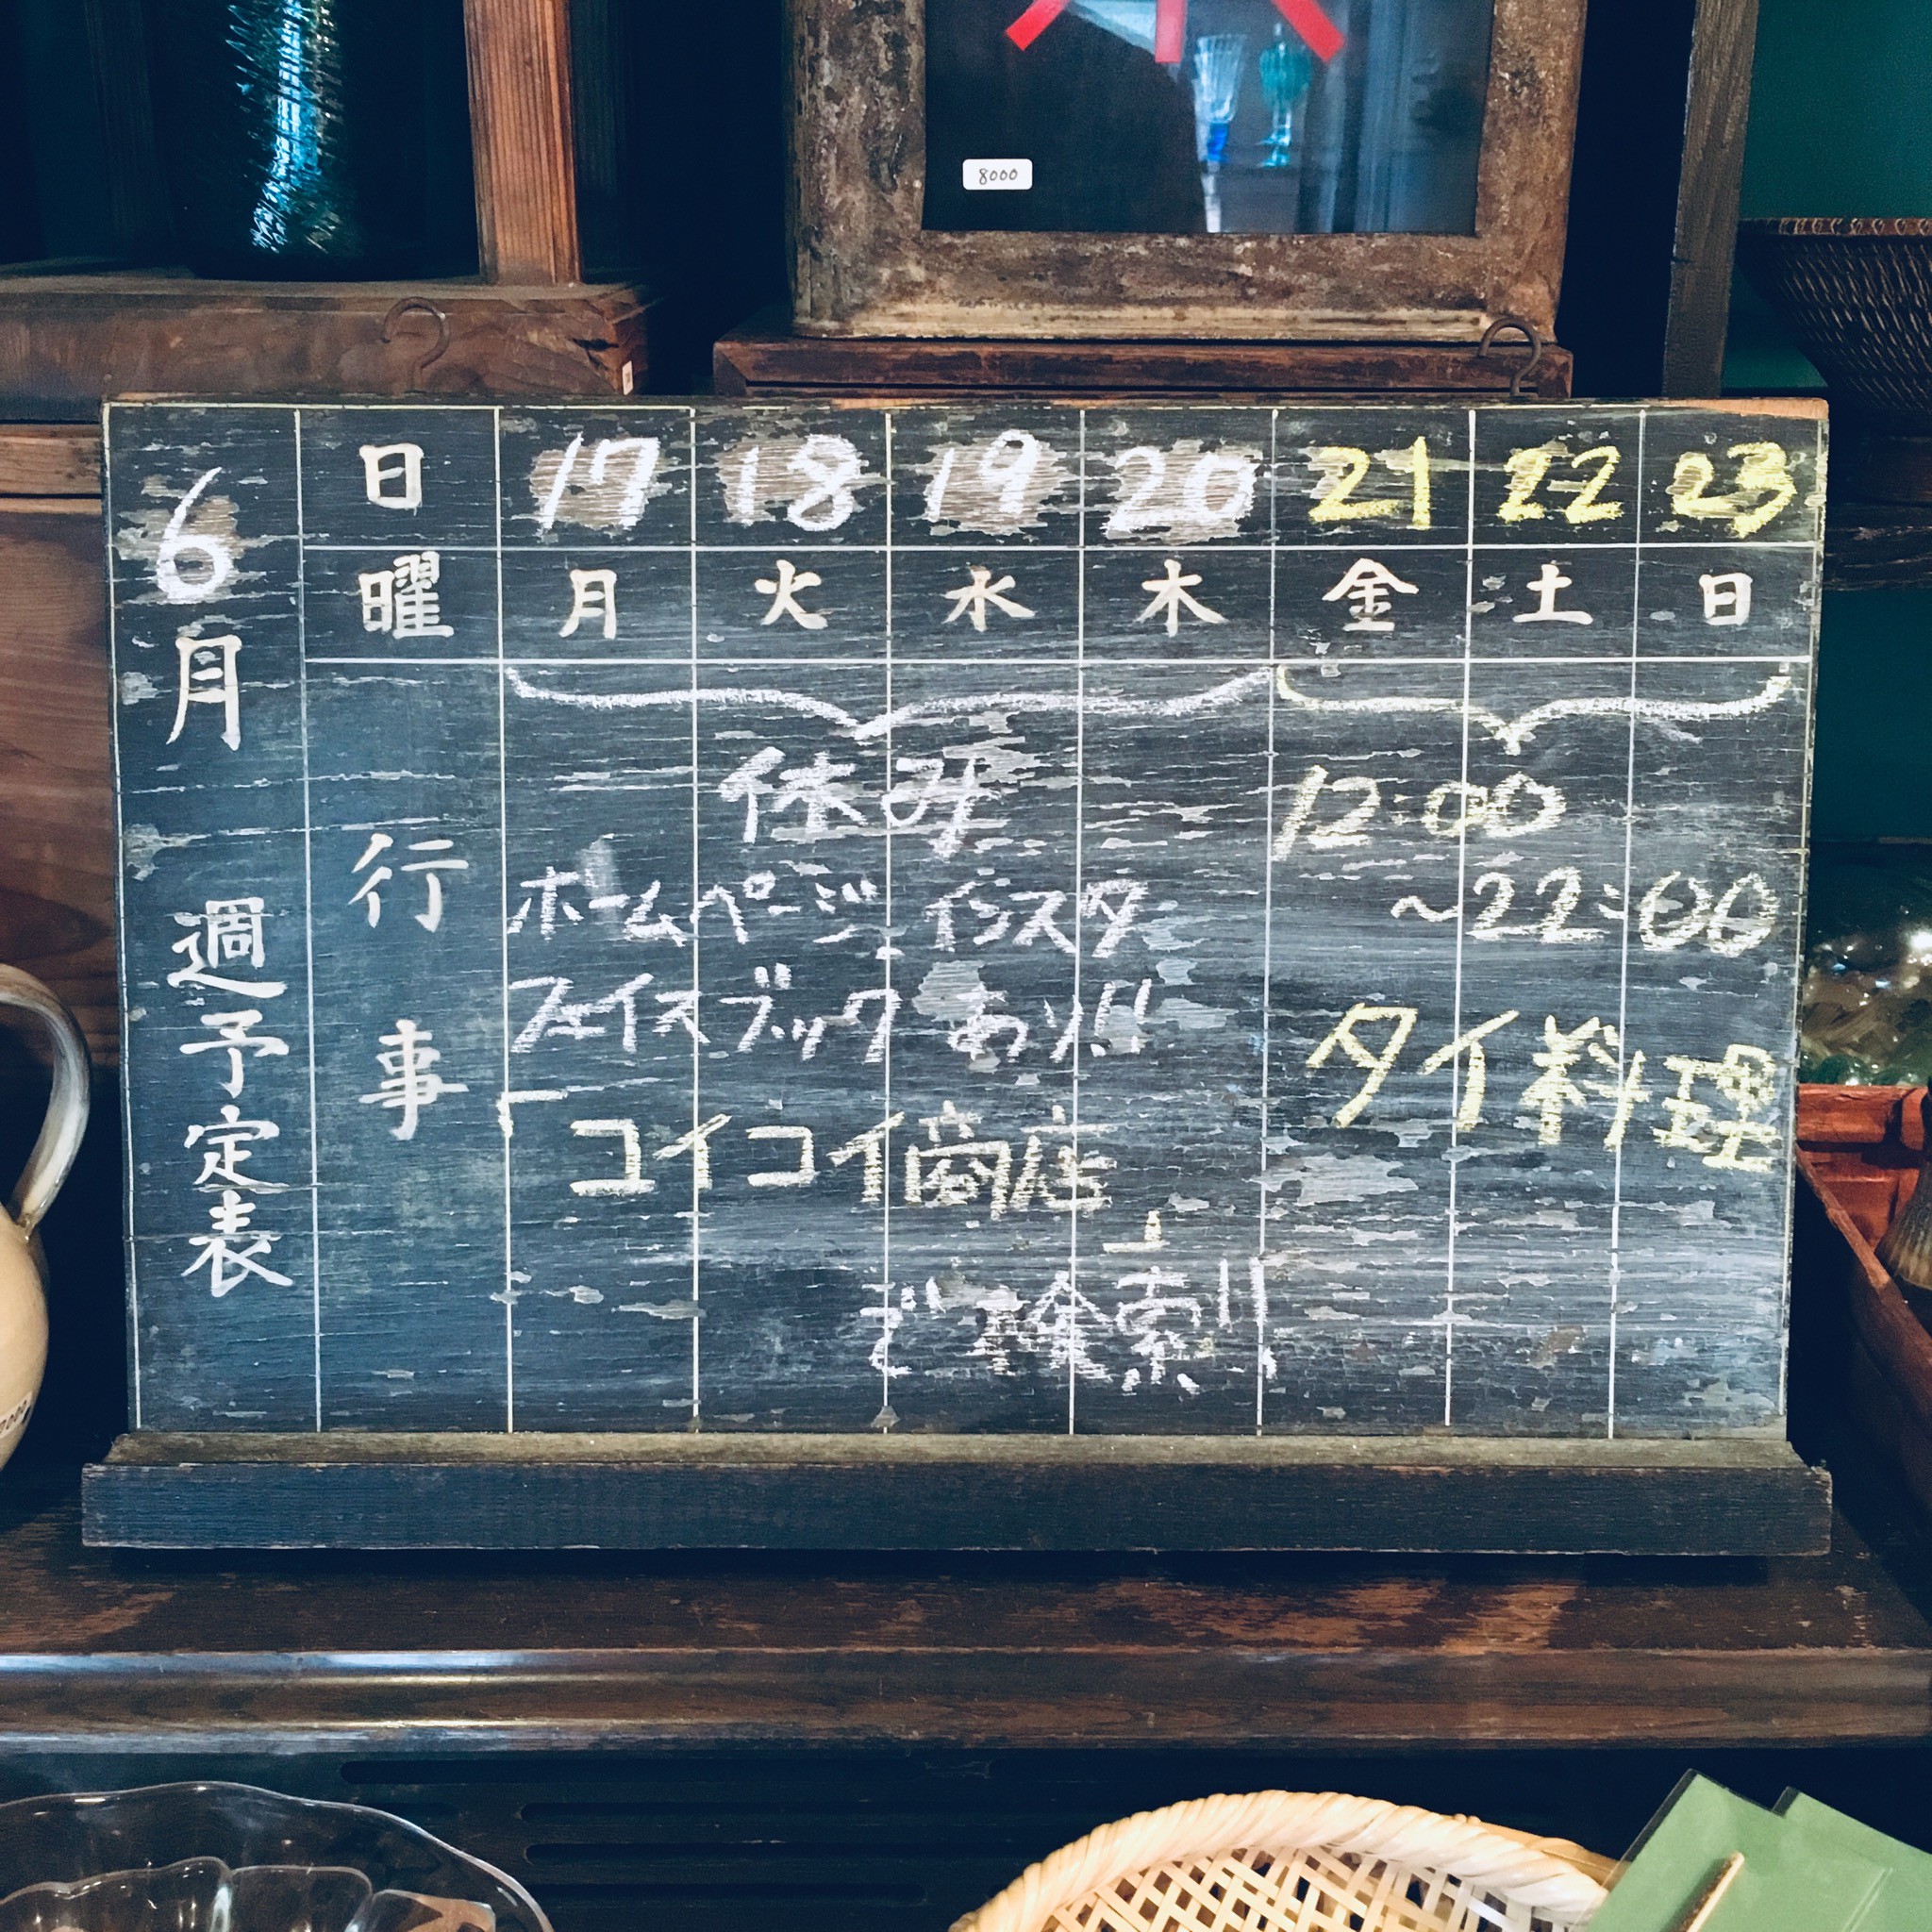 8000
6月
週予定表
日 17 18 19 20 21 22 23
曜 月 火 水 木 金 土 日
行事
休み
ホームページ インスタ
フェイスブック あり!!
「コイコイ商店」
で検索!!
12:00
~22:00
タイ料理